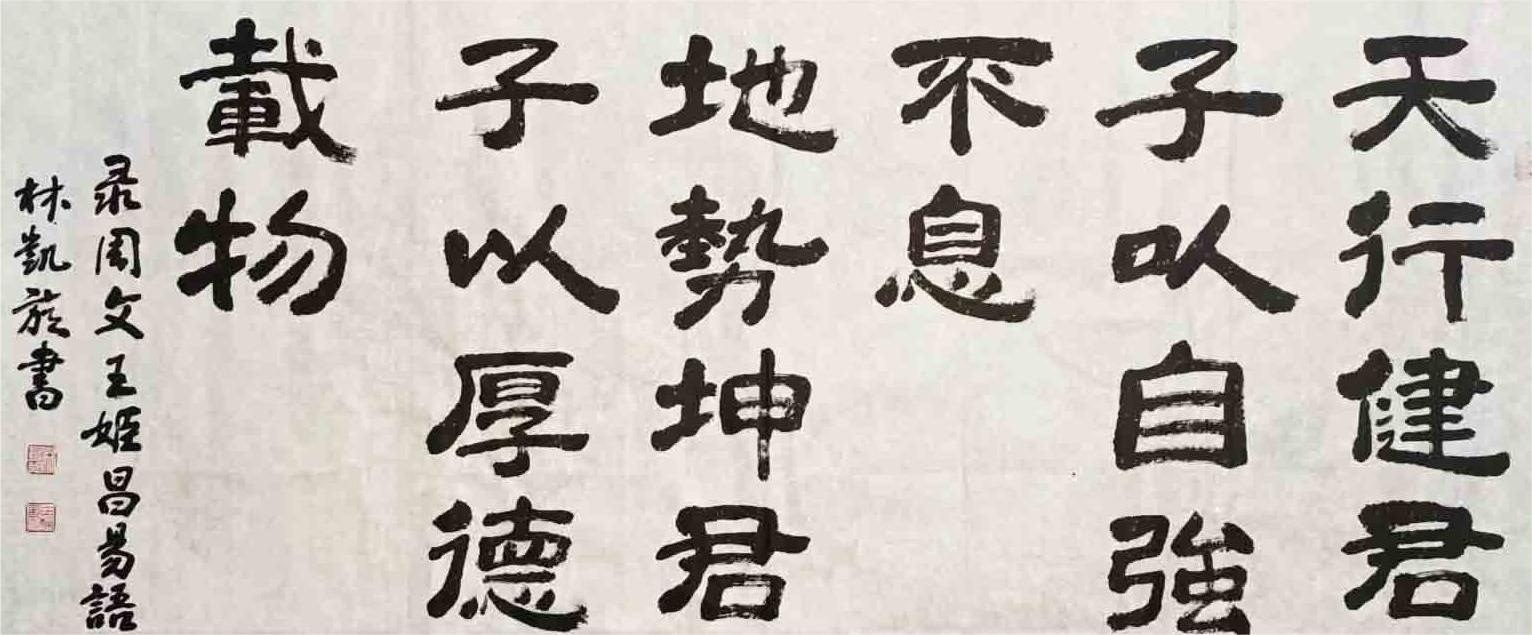 天行健君
子以自強
不息
地勢坤君
子以厚德
載物
录周文王姬昌易語
林凱旋書